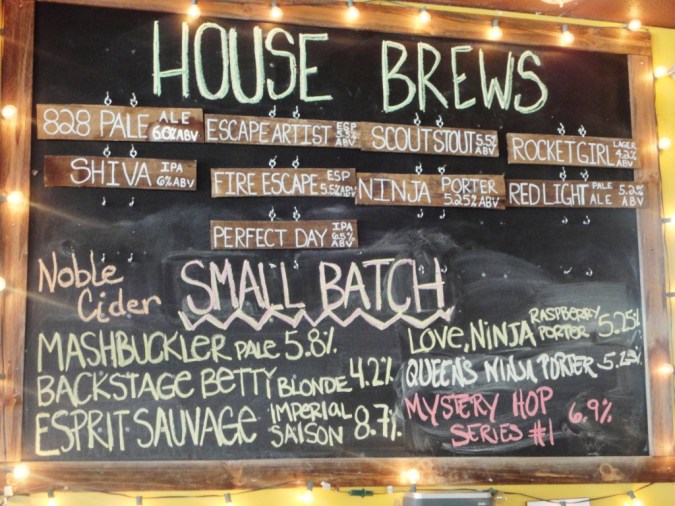 HOUSE BREWS
828 PALE ALE 6.0% ABV
ESCAPE ARTIST ABV
SCOUT STOUT 5.5% ABV
ROCKETGIRL LAGER 4.2% ABV
SHIVA IPA 6% ABV
FIRE ESCAPE ESP 5.5% ABV
NINJA PORTER 5.25% ABV
RED LIGHT PALE ALE 5.2% ABV
PERFECT DAY IPA 6.5% ABV
NOBLE CIDER
SMALL BATCH
MASHBUCKLER PALE 5.8%
BACKSTAGE BETTY BLONDE 4.2%
ESPRIT SAUVAGE IMPERIAL SAISON 8.7%
LOVE, NINJA RASPBERRY PORTER 5.25%
QUEEN'S NINJA PORTER 5.25%
MYSTERY HOP SERIES #1 6.9%